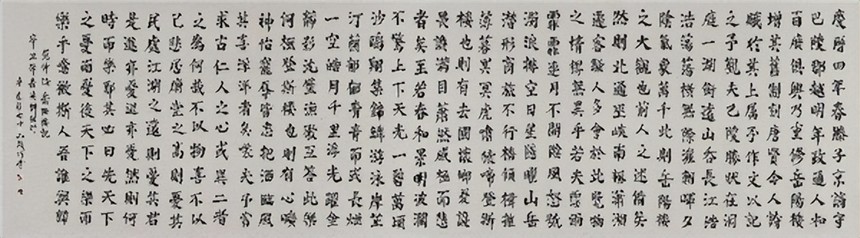 慶曆四年春滕子京謫守
巴陵郡越明年政通人和
百廢俱興乃重修岳陽樓
增其舊制刻唐賢今人詩
賦於其上屬予作文以記
之予觀夫巴陵勝狀在洞
庭一湖銜遠山吞長江浩
浩蕩蕩橫無際涯朝暉夕
陰氣象萬千此則岳陽樓
之大觀也前人之述備矣
然則北通巫峽南極瀟湘
遷客騷人多會於此覽物
之情得無異乎若夫霪雨
霏霏連月不開陰風怒號
濁浪排空日星隱曜山岳
潛形商旅不行檣傾楫摧
薄暮冥冥虎嘯猿啼登斯
樓也則有去國懷鄉憂讒
畏譏滿目蕭然感極而悲
者矣至若春和景明波瀾
不驚上下天光一碧萬頃
沙鷗翔集錦鱗游泳岸芷
汀蘭郁郁青青而或長煙
一空皓月千里浮光耀金
靜影沉璧漁歌互答此樂
何極登斯樓也則有心曠
神怡寵辱皆忘把酒臨風
其喜洋洋者矣嗟夫予嘗
求古仁人之心或異二者
之為何哉不以物喜不以
己悲居廟堂之高則憂其
民處江湖之遠則憂其君
是進亦憂退亦憂然則何
時而樂耶其必曰先天下
之憂而憂後天下之樂而
樂乎噫微斯人吾誰與歸
范仲淹岳陽樓記